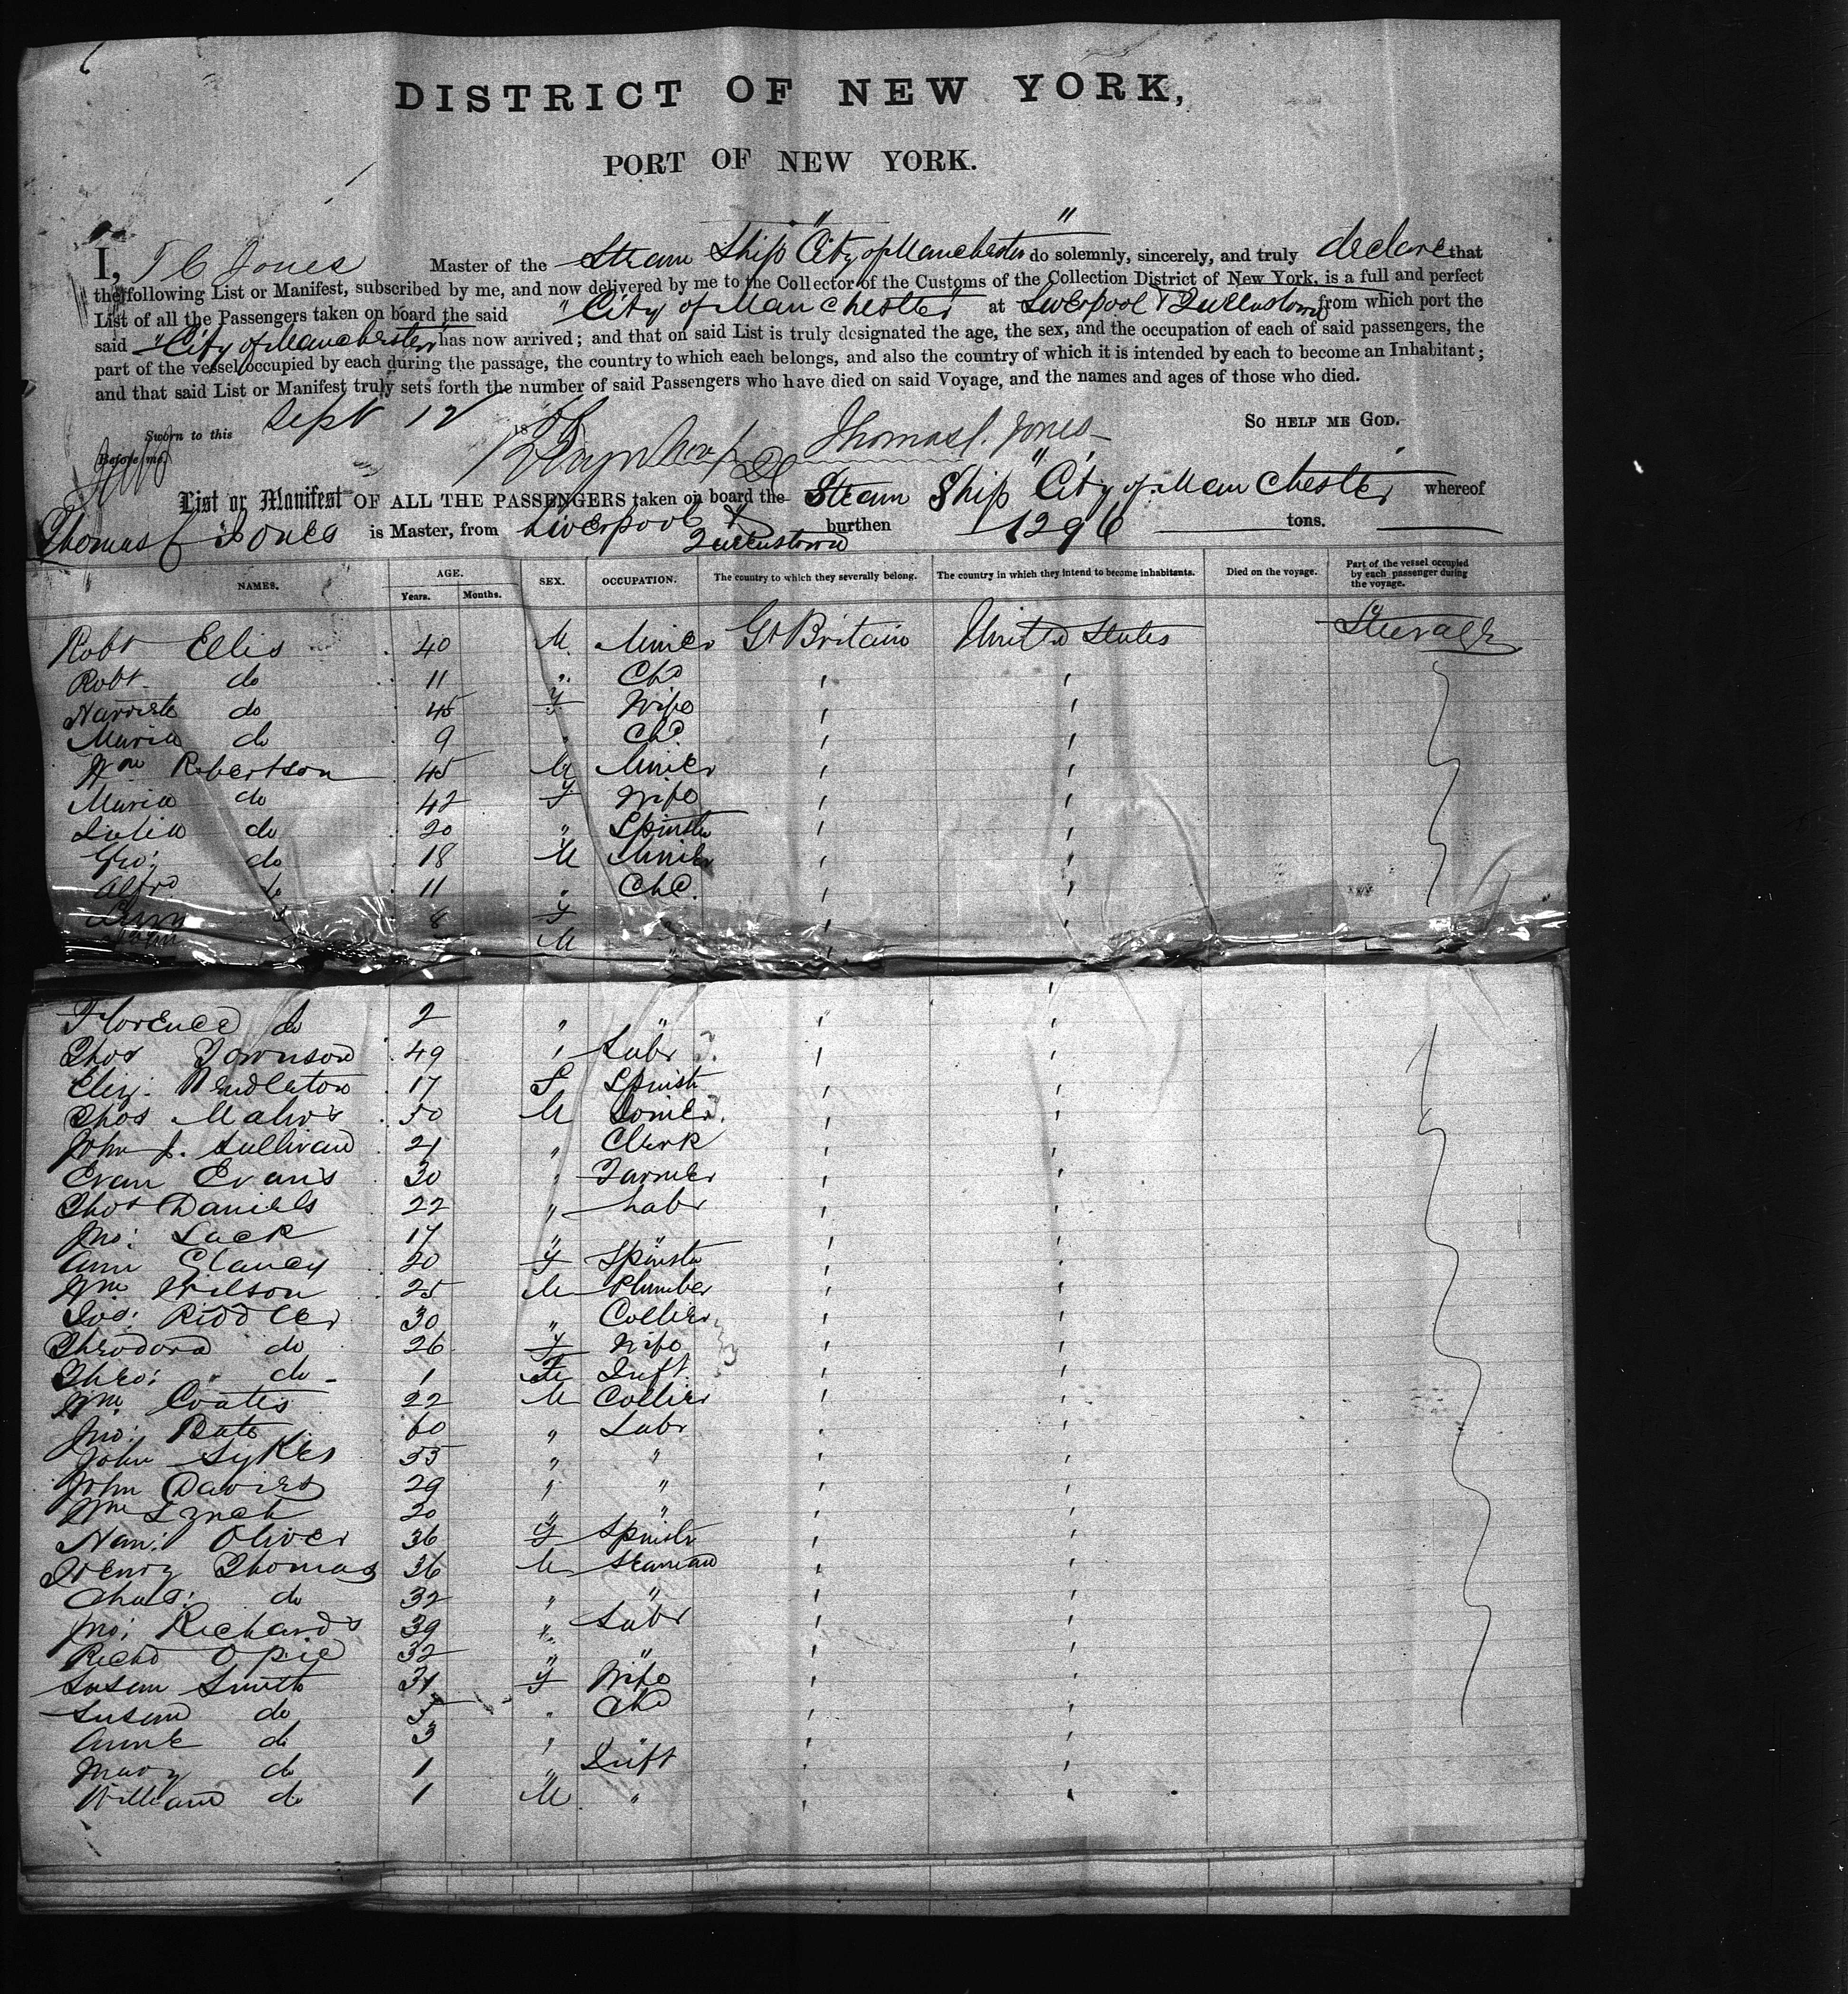 DISTRICT OF NEW YORK,
PORT OF NEW YORK.
I, T C Jones Master of the Steam Ship "City of Manchester" do solemnly, sincerely, and truly declare that
the following List or Manifest, subscribed by me, and now delivered by me to the Collector of the Customs of the Collection District of New York, is a full and perfect
List of all the Passengers taken on board the said "City of Manchester" at Liverpool & Queenstown from which port the
said "City of Manchester" has now arrived; and that on said List is truly designated the age, the sex, and the occupation of each of said passengers, the
part of the vessel occupied by each during the passage, the country to which each belongs, and also the country of which it is intended by each to become an Inhabitant;
and that said List or Manifest truly sets forth the number of said Passengers who have died on said Voyage, and the names and ages of those who died.
Sworn to this Sept 12 18 SO HELP ME GOD.
Before me, Thomas C. Jones
List or Manifest OF ALL THE PASSENGERS taken on board the Steam Ship "City of Manchester" whereof
Thomas C Jones is Master, from Liverpool & Queenstown burthen 1296 tons.
NAMES. AGE. Years. Months. SEX. OCCUPATION. The country to which they severally belong. The country in which they intend to become inhabitants. Died on the voyage. Part of the vessel occupied by each passenger during the voyage.
Robt Ellis 40 M Miner Gt Britain United States Steerage
Robt do 11 " Chd
Harriet do 45 F Wife
Maria do 9 " Chd
Wm Robertson 45 M Miner
Maria do 42 F Wife
Julia do 20 " Spinster
Geo: do 18 M Miner
Alfrd do 11 " Chd.
Ann do 8 F
John M
Florence do 2 " "
Thos Townson 49 " Labr
Eliz: Pendleton 17 F Spinstr
Thos 50 M
John J. Sullivan 21 " Clerk
Evan Evans 30 " Farmer
Thos Daniels 22 " Labr
Jno: Lack 17 " "
Ann Clancy 20 F Spinstr
Wm Wilson 25 M Plumber
Jos: Riddler 30 " Collier
Theodora do 26 F Wife
Theo: " do 1 Inft
Wm Coates 22 M Collier
Jno: Bate 60 " Labr
John Sykes 55 " "
John Davies 29 " "
Wm Lynch 20 " "
Han: Oliver 36 F Spinstr
Henry Thomas 36 M Seaman
Chas: do 32 " "
Jno: Richards 39 " Labr
Richd Opie 32 " "
Susan Smith 31 F Wife
Susan do 5 " Chd
Annie do 3 " "
Mary do 1 " Inft
William do 1 M "